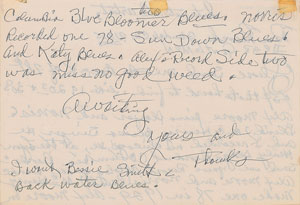 too
Columbia Blue Bloomer Blues. Norris
Recorded one 78 - Sun Down Blues &
And Katy Blues. Alex's Record Side two
was miss no good weed.
Awaiting
yours and
Thanks
I want Bessie Smith
Back water Blues.